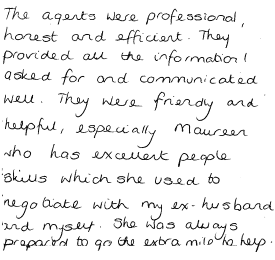 The agents were professional,
honest and efficient. They
provided all the information I
asked for and communicated
well. They were friendly and
helpful, especially Maureen
who has excellent people
skills which she used to
negotiate with my ex-husband
and myself. She was always
prepared to go the extra mile to help.